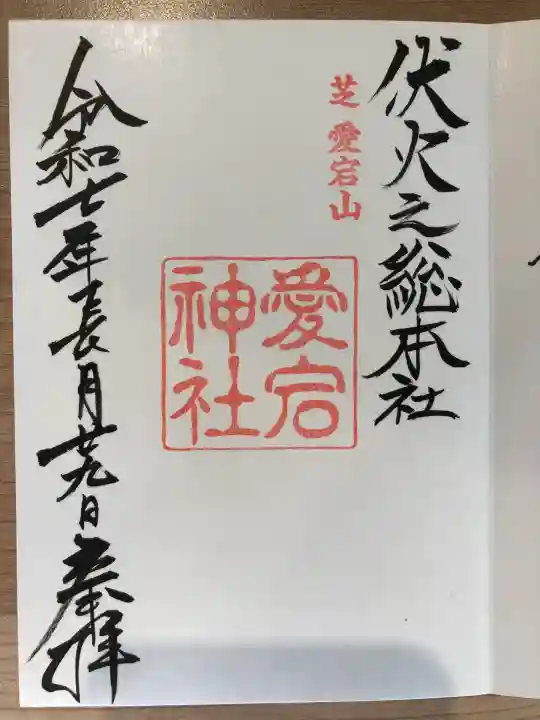 伏火之総本社
芝 愛宕山
愛宕
神社
令和七年長月廿九日奉拝